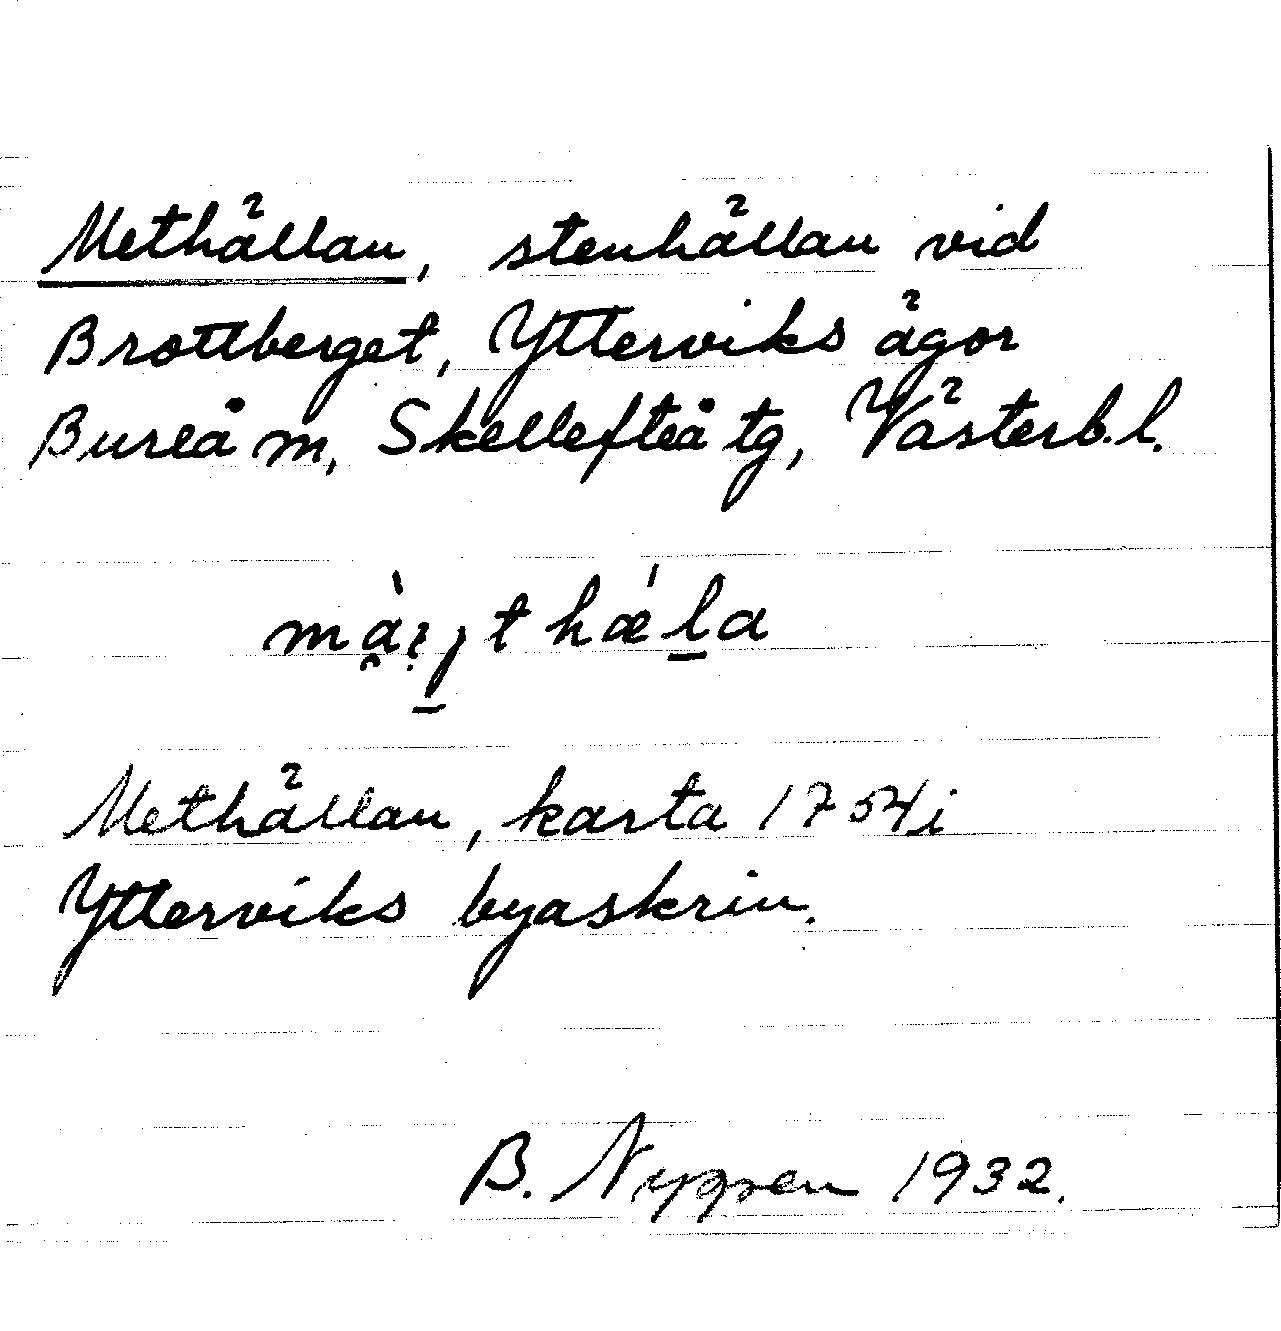 Methällan, stenhällan vid
Brottberget, Ytterviks ägor
Bureå m, Skellefteå tg, Västerb.l.
Methällan, karta 1754 i
Ytterviks byaskrin.
B. Nygren 1932.